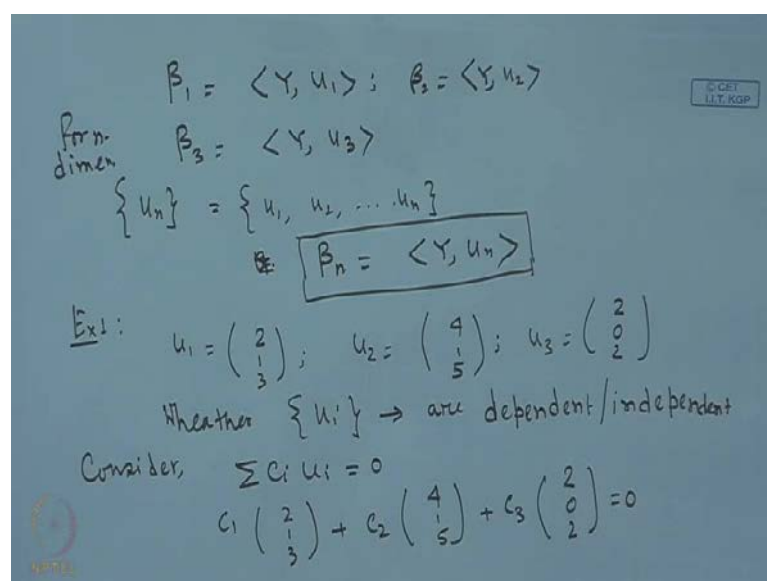 β₁ = <Y, u₁> ; β₂ = <Y, u₂>
© CET
I.I.T. KGP
For n.
dimen β₃ = <Y, u₃>
{un} = {u₁, u₂, ... un}
βn = <Y, un>
Ex1:
u₁ = (2 1 3) ; u₂ = (4 1 5) ; u₃ = (2 0 2)
Wheather {ui} → are dependent/independent
Consider, Σ ci ui = 0
c₁ (2 1 3) + c₂ (4 1 5) + c₃ (2 0 2) = 0
NPTEL